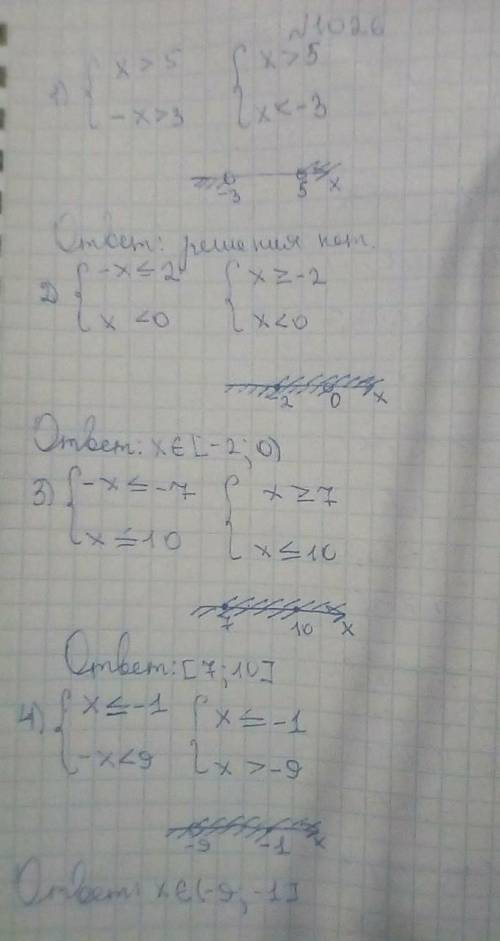 №1026
1) { x > 5 { x > 5
{ -x > 3 { x < -3
-3 5 x
Ответ: решения нет.
2) { -x ≤ 2 { x ≥ -2
{ x < 0 { x < 0
-2 0 x
Ответ: x ∈ [-2; 0)
3) { -x ≤ -7 { x ≥ 7
{ x ≤ 10 { x ≤ 10
7 10 x
Ответ: [7; 10]
4) { x ≤ -1 { x ≤ -1
{ -x < 9 { x > -9
-9 -1 x
Ответ: x ∈ (-9; -1]